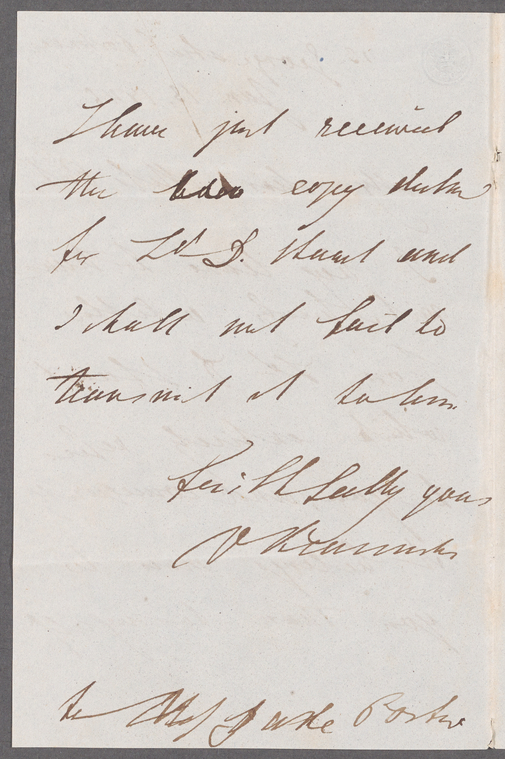 I have just received
the copy destin
for Ld D. Stuart and
I shall not fail to
transmit it to him
faithfully yours
V Krasinski
to Miss Jane Porter